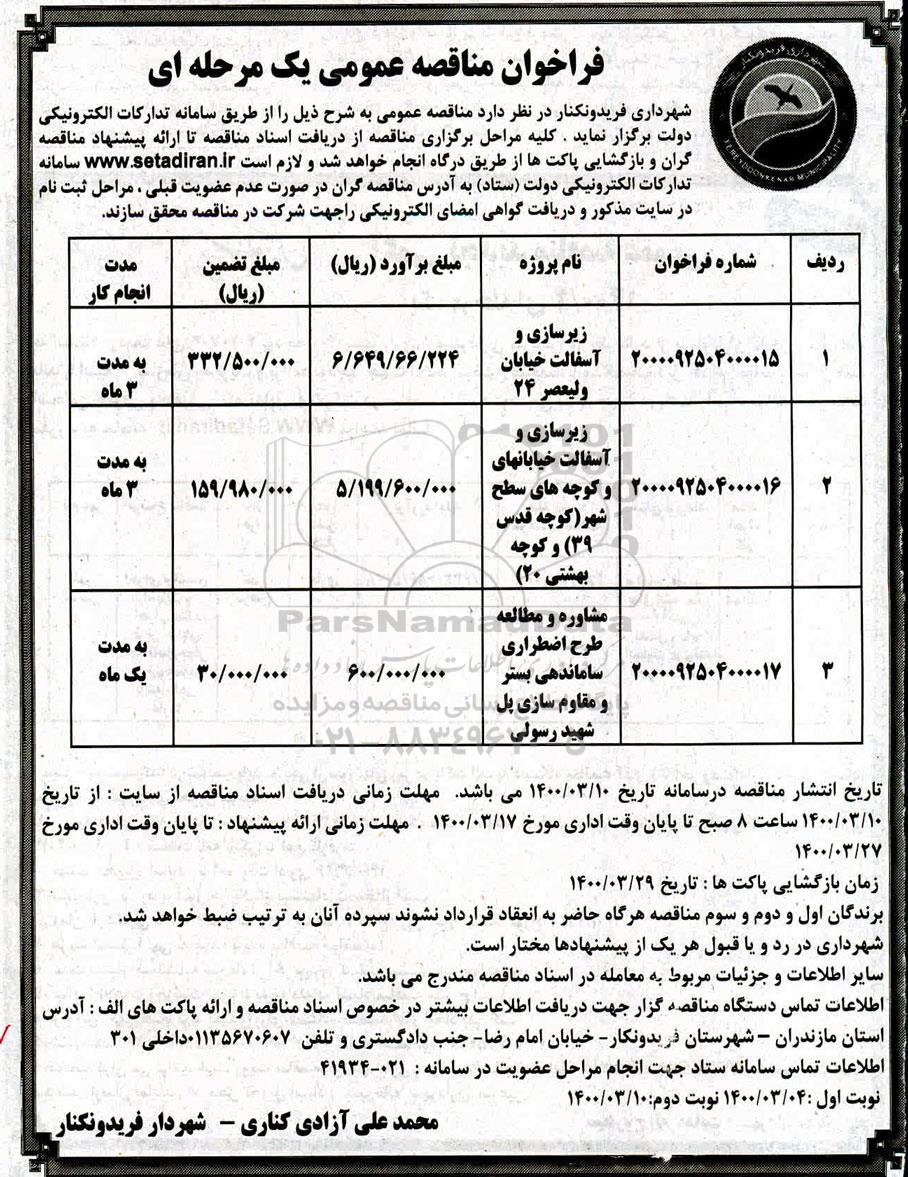 فراخوان مناقصه عمومی یک مرحله ای
شهرداری فریدونکنار
FEREYDOONKENAR MUNICIPALITY
شهرداری فریدونکنار در نظر دارد مناقصه عمومی به شرح ذیل را از طریق سامانه تدارکات الکترونیکی
دولت برگزار نماید . کلیه مراحل برگزاری مناقصه از دریافت اسناد مناقصه تا ارائه پیشنهاد مناقصه
گران و بازگشایی پاکت ها از طریق درگاه انجام خواهد شد و لازم است www.setadiran.ir سامانه
تدارکات الکترونیکی دولت (ستاد) به آدرس مناقصه گران در صورت عدم عضویت قبلی ، مراحل ثبت نام
در سایت مذکور و دریافت گواهی امضای الکترونیکی راجهت شرکت در مناقصه محقق سازند.
ردیف شماره فراخوان نام پروژه مبلغ برآورد (ریال) مبلغ تضمین مدت
(ریال) انجام کار
زیرسازی و
۱ ۲۰۰۰۰۹۲۵۰۴۰۰۰۰۱۵ آسفالت خیابان ۶/۶۴۹/۶۶/۲۲۴ ۳۳۲/۵۰۰/۰۰۰ به مدت
ولیعصر ۲۴ ۳ ماه
زیرسازی و
آسفالت خیابانهای به مدت
۲ ۲۰۰۰۰۹۲۵۰۴۰۰۰۰۱۶ و کوچه های سطح ۵/۱۹۹/۶۰۰/۰۰۰ ۱۵۹/۹۸۰/۰۰۰ ۳ ماه
شهر(کوچه قدس
۳۹) و کوچه
بهشتی ۲۰)
مشاوره و مطالعه
طرح اضطراری به مدت
۳ ۲۰۰۰۰۹۲۵۰۴۰۰۰۰۱۷ ساماندهی بستر ۶۰۰/۰۰۰/۰۰۰ ۳۰/۰۰۰/۰۰۰ یک ماه
و مقاوم سازی پل
شهید رسولی
ParsNamadData
پایگاه اطلاع رسانی مناقصه و مزایده
تاریخ انتشار مناقصه درسامانه تاریخ ۱۴۰۰/۰۳/۱۰ می باشد. مهلت زمانی دریافت اسناد مناقصه از سایت : از تاریخ
۱۴۰۰/۰۳/۱۰ ساعت ۸ صبح تا پایان وقت اداری مورخ ۱۴۰۰/۰۳/۱۷ . مهلت زمانی ارائه پیشنهاد : تا پایان وقت اداری مورخ
۱۴۰۰/۰۳/۲۷
زمان بازگشایی پاکت ها : تاریخ ۱۴۰۰/۰۳/۲۹
برندگان اول و دوم و سوم مناقصه هرگاه حاضر به انعقاد قرارداد نشوند سپرده آنان به ترتیب ضبط خواهد شد.
شهرداری در رد و یا قبول هر یک از پیشنهادها مختار است.
سایر اطلاعات و جزئیات مربوط به معامله در اسناد مناقصه مندرج می باشد.
اطلاعات تماس دستگاه مناقصه گزار جهت دریافت اطلاعات بیشتر در خصوص اسناد مناقصه و ارائه پاکت های الف : آدرس
استان مازندران – شهرستان فریدونکار- خیابان امام رضا- جنب دادگستری و تلفن ۰۱۱۳۵۶۷۰۶۰۷داخلی ۳۰۱
اطلاعات تماس سامانه ستاد جهت انجام مراحل عضویت در سامانه : ۰۲۱-۴۱۹۳۴
نوبت اول :۱۴۰۰/۰۳/۰۴ نوبت دوم:۱۴۰۰/۰۳/۱۰
محمد علی آزادی کناری – شهردار فریدونکنار